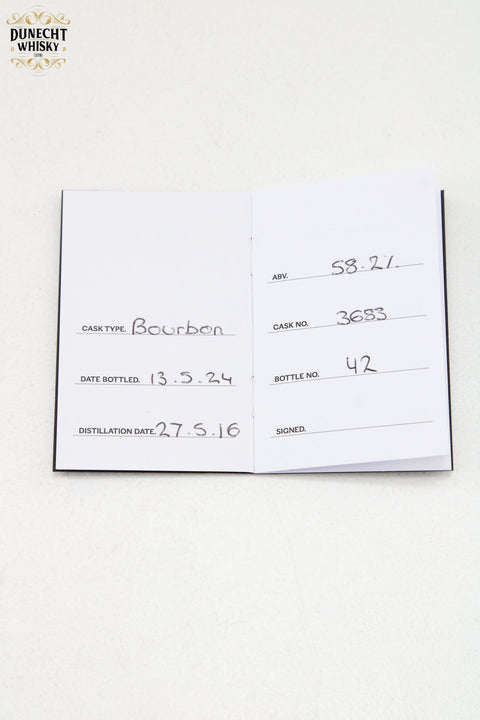 DUNECHT
WHISKY
CASK TYPE. Bourbon
DATE BOTTLED. 13.5.24
DISTILLATION DATE. 27.5.16
ABV. 58.2%.
CASK NO. 3683
BOTTLE NO. 42
SIGNED.